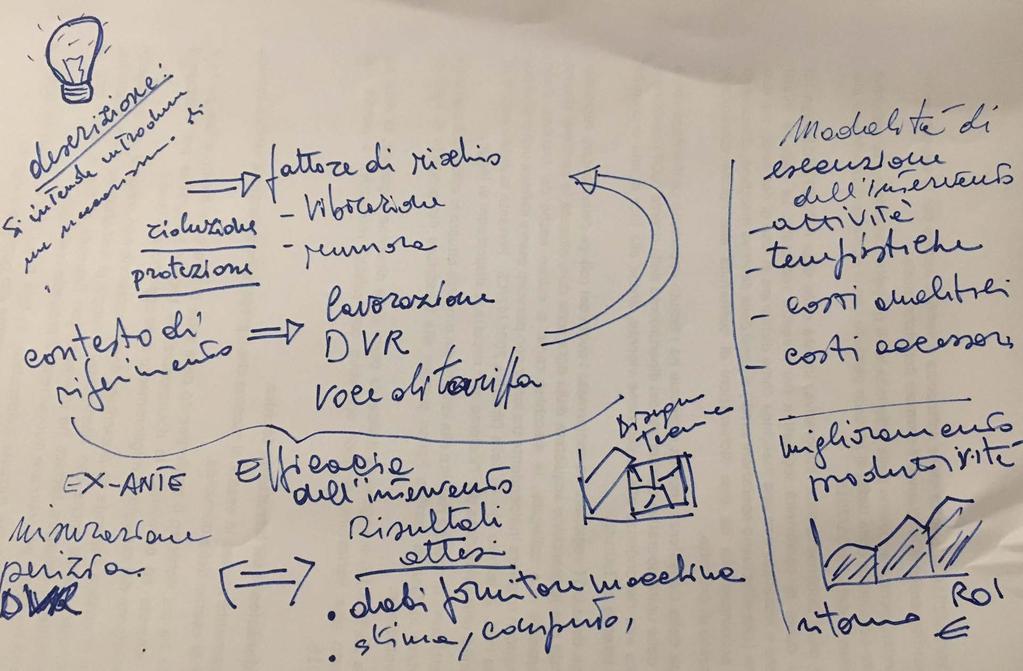 descrizione:
Si intende introdurre
una macchina. di
fattore di rischio
- vibrazione
- rumore
riduzione
protezione
contesto di
riferimento
lavorazione
DVR
voce di tariffa
EX-ANTE
Efficacia
dell'intervento
Misurazione
perizia.
DVR
Risultati
attesi
. dati fornitore macchina
. stima, computo,
Disegno
Modalità di
esecuzione
dell'intervento
- attività
- tempistiche
- costi analitici
- costi accessori
miglioramento
produttività
ritorno ROI
€